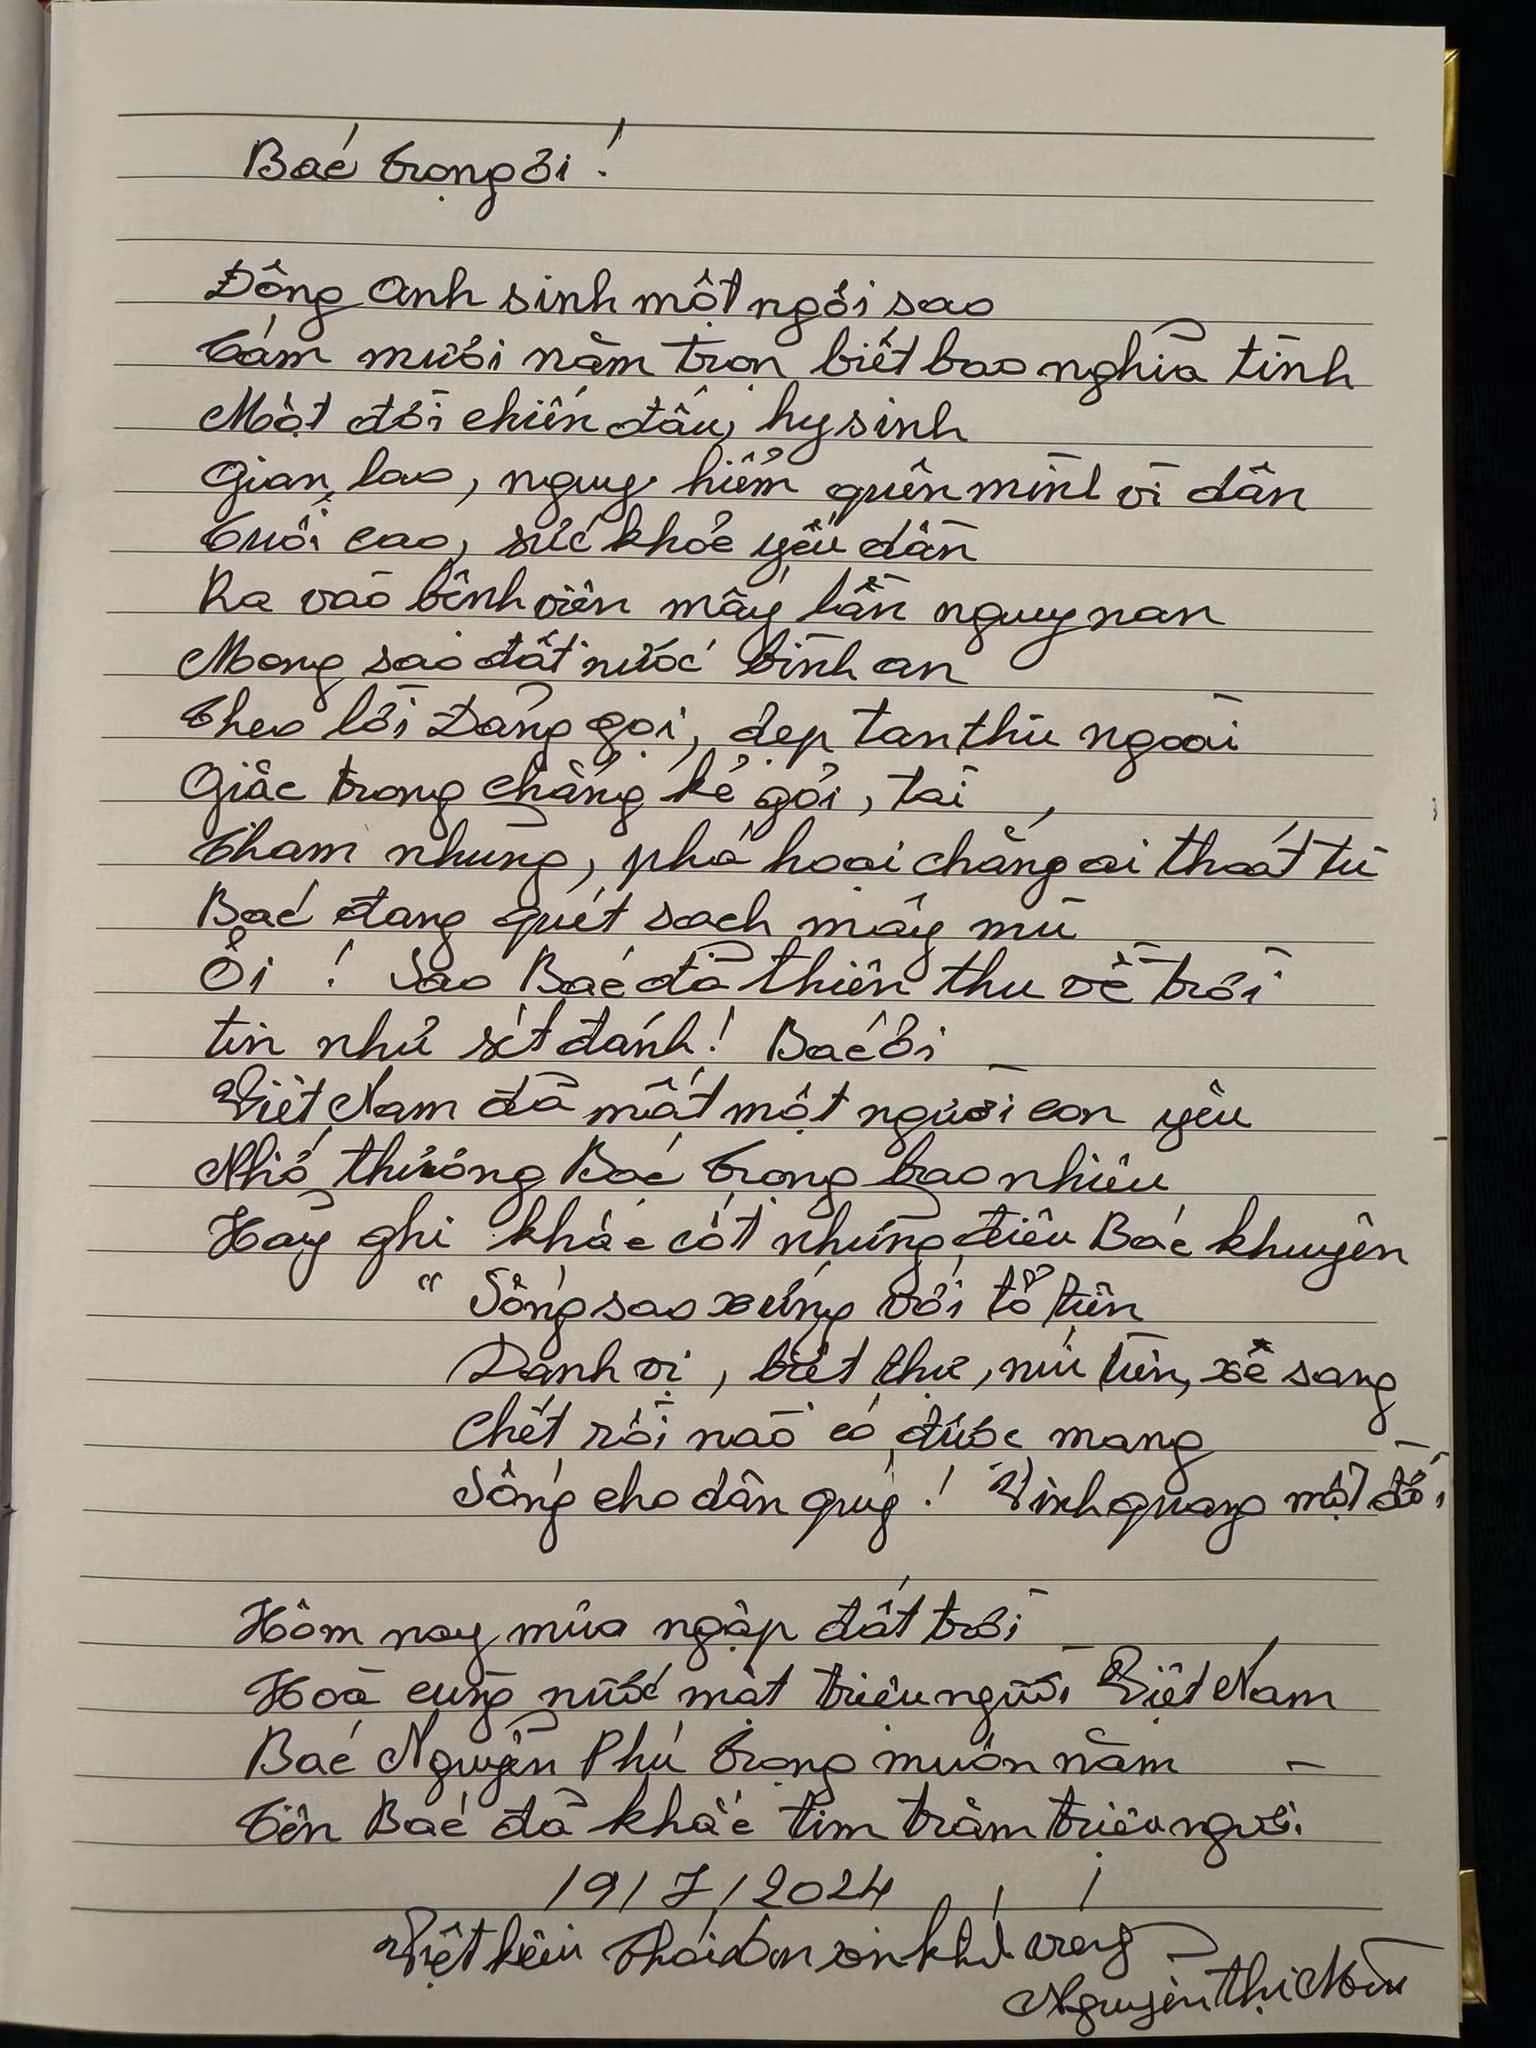 Bác Trọng ơi!
Đông Anh sinh một ngôi sao
Tám mươi năm trọn biết bao nghĩa tình
Một đời chiến đấu, hy sinh
Gian lao, nguy hiểm quên mình vì dân
Tuổi cao, sức khỏe yếu dần
Ra vào bệnh viện mấy lần nguy nan
Mong sao đất nước bình an
Theo lời Đảng gọi, dẹp tan thù ngoài
Giặc trong chẳng kể giỏi, tài
Tham nhũng, phá hoại chẳng ai thoát tù
Bác đang quét sạch mây mù
Ôi! Sao Bác đã thiên thu về trời
tin như sét đánh! Bác ơi
Việt Nam đã mất một người con yêu
Nhớ thương Bác Trọng bao nhiêu
Hãy ghi khắc cốt những điều Bác khuyên
“Sống sao xứng với tổ tiên
Danh vị, biệt thự, núi tiền, xe sang
Chết rồi nào có được mang
Sống cho dân quý! Vinh quang một đời
Hôm nay mưa ngập đất trời
Hoà cùng nước mắt triệu người Việt Nam
Bác Nguyễn Phú Trọng muôn năm
Tên Bác đã khắc tim trăm triệu người
19/7/2024
Việt kiều Thái Lan xin kính viếng
Nguyễn Thị